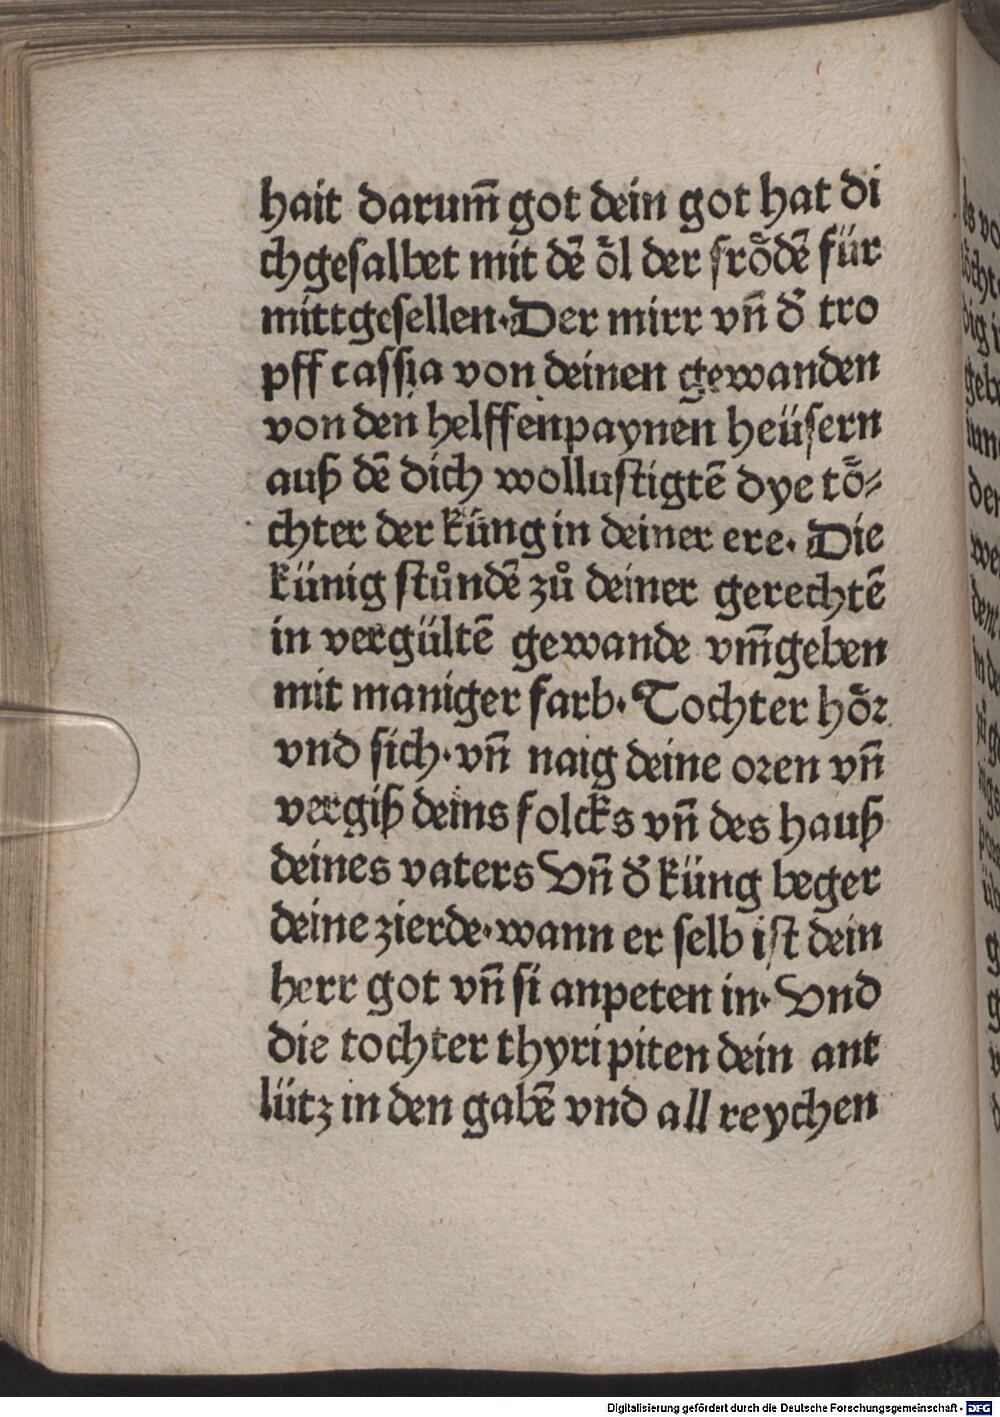 hait darum̃ got dein got hat di
chgesalbet mit dē ȍl der frȍdē für
mittgesellen·Der mirr vñ d̕ tro
pff cassia von deinen gewanden
von den helffenpaynen heüsern
auß dē dich wollustigtē dye tȍ⸗
chter der küng in deiner ere· Die
künig stůndē zů deiner gerechtē
in vergültē gewande vm̃geben
mit maniger farb·Tochter hȍꝛ
vnd sich·vñ naig deine oꝛen vñ
vergiß deins folcks vñ des hauß
deines vaters Vñ d̕ küng beger
deine zierde·wann er selb ist dein
herr got vñ si anpeten in· Vnd
die tochter thyri piten dein ant
lütz in den gabē vnd all reychen
Digitalisierung gefördert durch die Deutsche Forschungsgemeinschaft - DFG